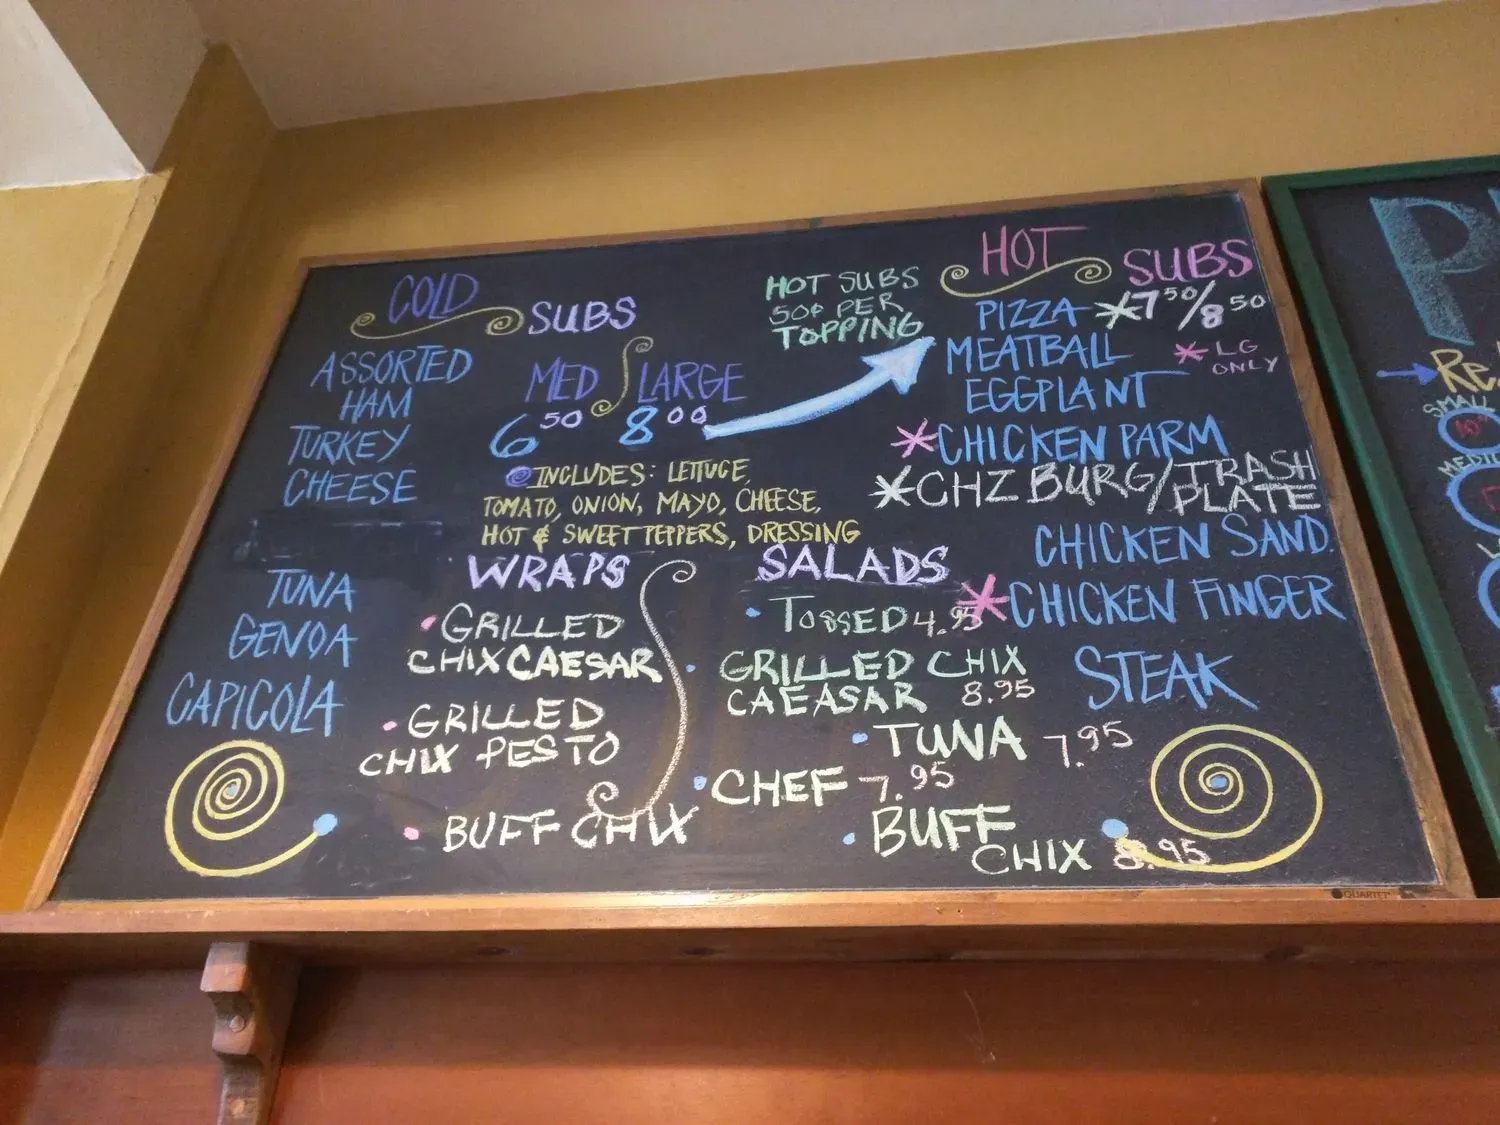 COLD SUBS
ASSORTED
HAM
TURKEY
CHEESE
TUNA
GENOA
CAPICOLA
MED LARGE
6 50 8 00
INCLUDES: LETTUCE,
TOMATO, ONION, MAYO, CHEESE,
HOT & SWEET PEPPERS, DRESSING
HOT SUBS
50¢ PER
TOPPING
HOT SUBS
PIZZA *7 50/8 50
MEATBALL
* LG
ONLY
EGGPLANT
*CHICKEN PARM
*CHZ BURG/TRASH
PLATE
CHICKEN SAND.
*CHICKEN FINGER
STEAK
WRAPS
• GRILLED
CHIX CAESAR
• GRILLED
CHIX PESTO
• BUFF CHIX
SALADS
• TOSSED 4.95
• GRILLED CHIX
CAEASAR 8.95
• TUNA 7.95
• CHEF 7.95
• BUFF
CHIX 8.95
QUARTET
SMALL